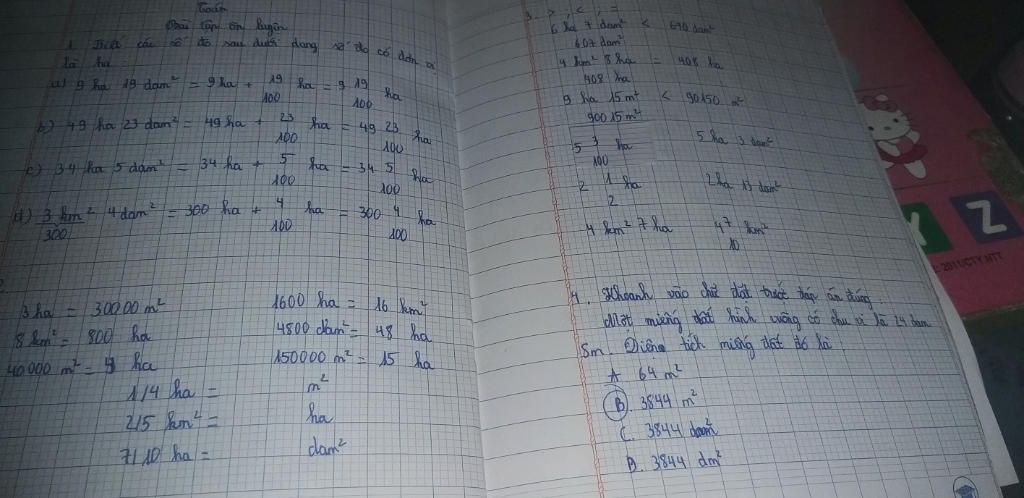 Toán
Bài tập ôn luyện
1. Viết các số đo sau dưới dạng số đo có đơn vị
là ha
a) 9 ha 19 dam² = 9 ha + 19/100 ha = 9 19/100 ha
b) 49 ha 23 dam² = 49 ha + 23/100 ha = 49 23/100 ha
c) 34 ha 5 dam² = 34 ha + 5/100 ha = 34 5/100 ha
d) 3 km² 4 dam² = 300 ha + 4/100 ha = 300 4/100 ha
300
3 ha = 30000 m² 1600 ha = 16 km²
8 km² = 800 ha 4800 dam² = 48 ha
40000 m² = 4 ha 150000 m² = 15 ha
1/4 ha = m²
2/5 km² = ha
7/10 ha = dam²
3. > , < , =
6 ha 7 dam² < 670 dam²
607 dam²
4 km² 8 ha = 408 ha
408 ha
9 ha 15 m² < 90150 m²
90015 m²
5 3/100 ha 5 ha 3 dam²
2 1/2 ha 2 ha 13 dam²
4 km² 7 ha 4 7/10 km²
4. Khoanh vào chữ đặt trước đáp án đúng
Một miếng đất hình vuông có chu vi là 24 dam
8m. Diện tích miếng đất đó là:
A 64 m²
B. 3844 m²
C. 3844 dam²
D. 3844 dm²
Z